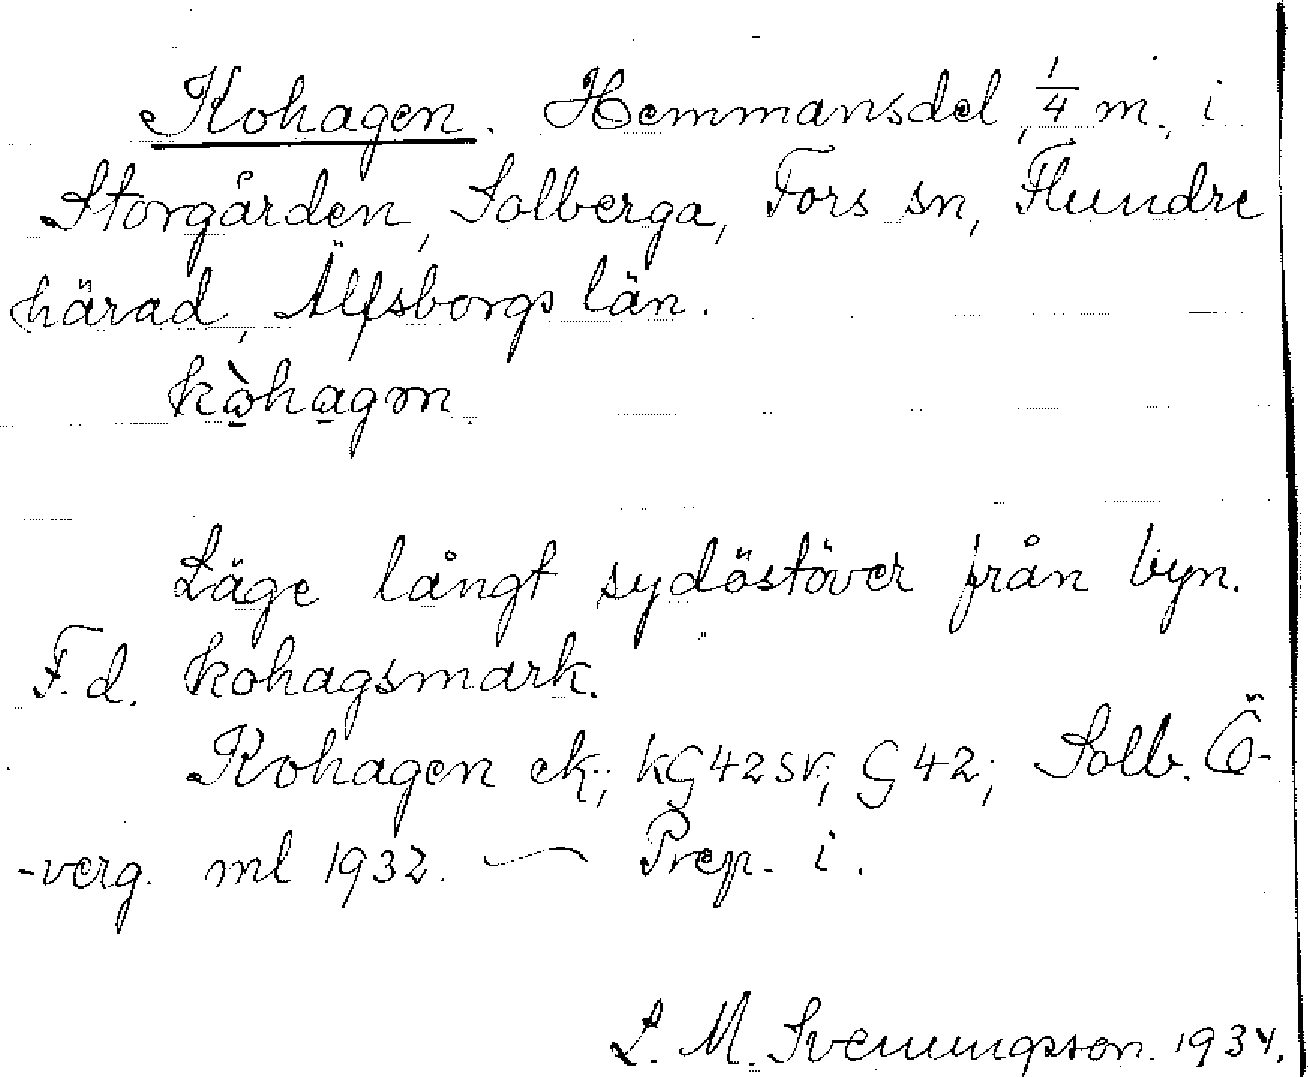 Kohagen. Hemmansdel, 1/4 m., i
Storgården, Solberga, Fors sn, Flundre
härad, Älfsborgs län.
kòhagən
Läge långt sydöstöver från byn.
F.d. kohagsmark.
Kohagen ek; kG42SV; G42; Solb. Ö-
-verg. ml 1932. — Prep. i.
L. M. Svenungsson. 1934.